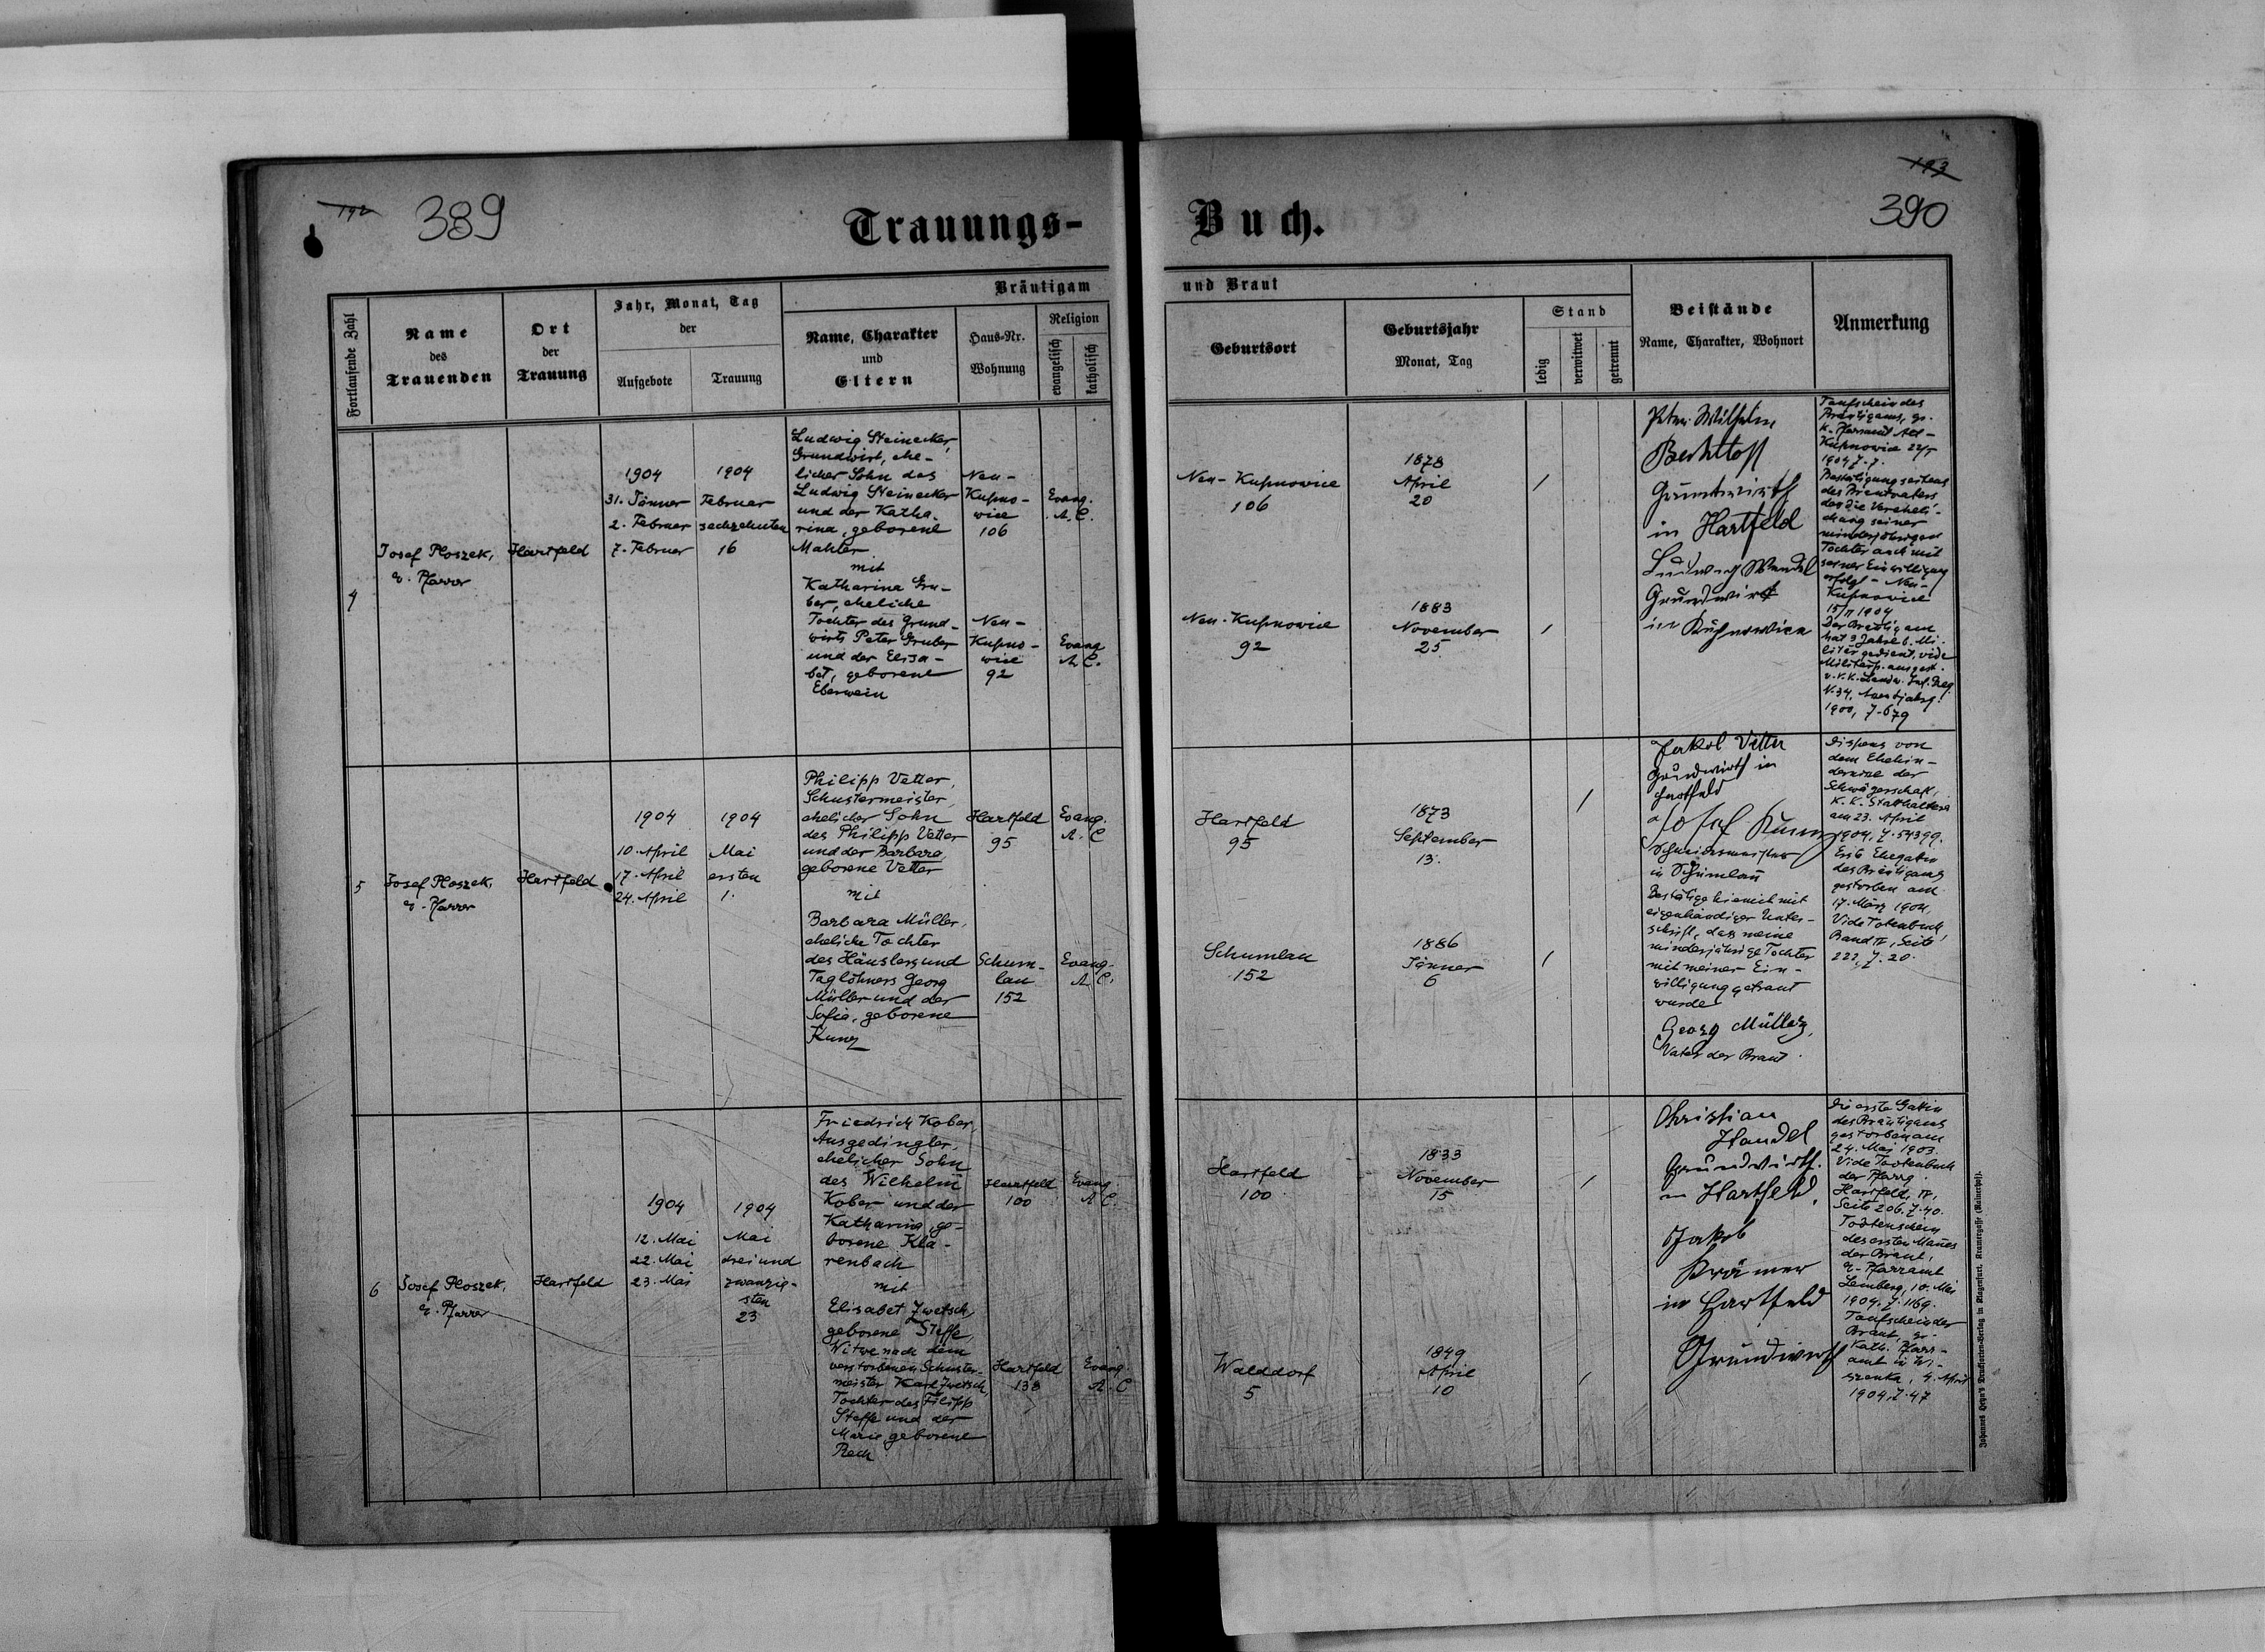 192
389
Trauungs-
Buch.
193
390
Fortlaufende Zahl
Name
des
Trauenden
Ort
der
Trauung
Jahr, Monat, Tag
der
Aufgebote
Trauung
Bräutigam
Name, Charakter
und
Eltern
Haus-Nr.
Wohnung
Religion
evangelisch
katholisch
und Braut
Geburtsort
Geburtsjahr
Monat, Tag
Stand
ledig
verwitwet
getrennt
Beistände
Name, Charakter, Wohnort
Anmerkung
4
Josef Ploszek,
Pfarrer
Hartfeld
1904
31. Jänner
2. Februar
7. Februar
1904
Februar
sechzehnten
16
Ludwig Steinecker,
Grundwirt, ehe-
licher Sohn des
Ludwig Steinecker
und der Katha-
rina, geborene
Mahler
mit
Katharina Gru-
ber, eheliche
Tochter des Grund-
wirts Peter Gruber
und der Elisa-
bet, geborene
Eberwein
Neu-
Kupno-
wice
106
Neu-
Kupno-
wice
92
Evang.
A. C.
Evang
A. C.
Neu-Kupnowice
106
Neu-Kupnowice
92
1878
April
20
1883
November
25
Peter Wilhelm
Grundwirth
in Hartfeld
Ludwig Wendel
Grundwirt
in Kupnowice
Taufschein des
Bräutigams, gr.
k. Pfarramt Alt-
Kupnowice
1904 Z. 7.
Bestätigung seitens
des Brautvaters
das die Vereheli-
chung seiner
minderjährigen
Tochter auch mit
seiner Einwilligung
erfolgt - Neu-
Kupnowice
15/II 1904
Der Bräutigam
hat 3 Jahre b. Mi-
litär gedient, vide
Militärp. ausgest.
v. k. k. Landw. Inf. Reg.
N. 34,
1900, Z. 679
5
Josef Ploszek,
Pfarrer
Hartfeld
1904
10. April
17. April
24. April
1904
Mai
ersten
1.
Philipp Vetter,
Schustermeister,
ehelicher Sohn
des Philipp Vetter
und der Barbara,
geborene Vetter
mit
Barbara Müller,
eheliche Tochter
des Häuslers und
Taglöhners Georg
Müller und der
Sofia, geborene
Kunz
Hartfeld
95
Schum-
lau
152
Evang.
A. C
Evang.
A. C.
Hartfeld
95
Schumlau
152
1873
September
13.
1886
Jänner
6
Jakob Vetter
Grundwirth in
Hartfeld
Josef Kunz
Schneidermeister
in Schumlau
Bestätige hiemit mit
eigenhändiger Unter-
schrift, dass meine
minderjährige Tochter
mit meiner Ein-
willigung getraut
wurde
Georg Müller,
Vater der Braut.
Dispens von
dem Ehehin-
dernisse der
Schwägerschaft,
K. K. Statthalterei
am 23. April
1904, Z. 54399.
Erste Ehegattin
des Bräutigams
gestorben am
17. März 1904,
Vide Totenbuch,
Band IV, Seite
222, Z. 20.
6
Josef Ploszek,
Pfarrer
Hartfeld
1904
12. Mai
22. Mai
23. Mai
1904
Mai
drei und
zwanzig-
sten
23
Friedrich Kober,
Ausgedingler,
ehelicher Sohn
des Wilhelm
Kober und der
Katharina, ge-
borene Kla-
renbach
mit
Elisabet Zwetsch,
geborene Steffe,
Witwe nach dem
verstorbenen Schuster-
meister Karl Zwetsch,
Tochter des Filipp
Steffe und der
Marie, geborene
Rech
Hartfeld
100
Hartfeld
138
Evang.
A. C.
Evang.
A. C
Hartfeld
100
Walddorf
5
1833
November
15
1849
April
10
Christian
Handel
Grundwirth.
in Hartfeld,
Jakob
Krämer
in Hartfeld
Grundwirth
Die erste Gattin
des Bräutigams
gestorben am
24. Mai 1903.
Vide Todtenbuch
der Pfarrg.
Hartfeld, IV,
Seite 206, Z. 40.
Todtenschein
des ersten Mannes
der Braut,
Pfarramt
Lemberg, 10. Mai
1904, Z. 1169.
Taufschein der
Braut, gr.
Kath. Pfarr-
amt in Wi-
szenka, 4. April
1904, Z. 47
Johannes Heyn's Drucksorten-Verlag in Klagenfurt, Kramergasse (Rainerhof).